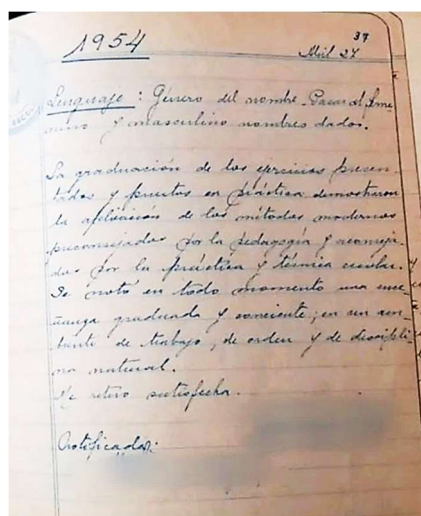 37
1954
Abril 27
Lenguaje: Género del nombre. Pasar al feme
nino y masculino nombres dados.
La graduación de los ejercicios presen-
tados y puestos en práctica demostraron
la aplicación de los métodos modernos
preconizados por la pedagogía y aconseja
dos por la práctica y técnica escolar.
Se notó en todo momento una ense
ñanza graduada y conciente; en un am-
biente de trabajo, de orden y de discipli-
na natural.
Me retiro satisfecha.